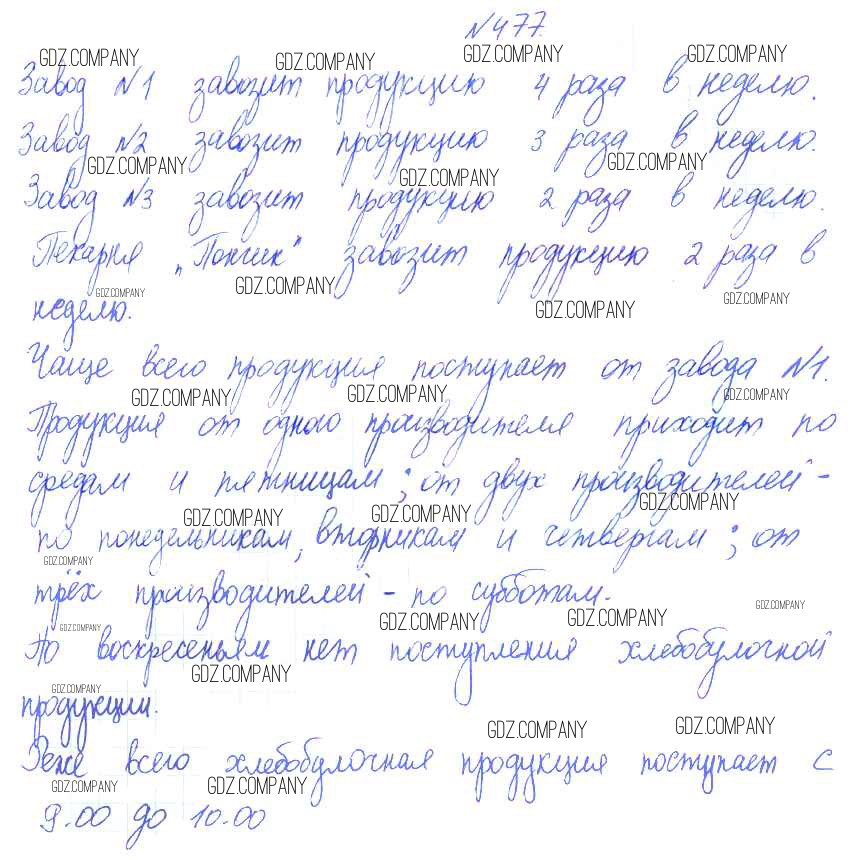 №477.
GDZ.COMPANY GDZ.COMPANY GDZ.COMPANY GDZ.COMPANY
Завод №1 завозит продукцию 4 раза в неделю.
Завод №2 завозит продукцию 3 раза в неделю.
GDZ.COMPANY GDZ.COMPANY GDZ.COMPANY
Завод №3 завозит продукцию 2 раза в неделю.
Пекарня „Пончик“ завозит продукцию 2 раза в
GDZ.COMPANY GDZ.COMPANY GDZ.COMPANY GDZ.COMPANY
неделю.
Чаще всего продукция поступает от завода №1.
GDZ.COMPANY GDZ.COMPANY GDZ.COMPANY
Продукция от одного производителя приходит по
средам и пятницам; от двух производителей -
GDZ.COMPANY GDZ.COMPANY GDZ.COMPANY
по понедельникам, вторникам и четвергам; от
GDZ.COMPANY
трёх производителей - по субботам.
GDZ.COMPANY GDZ.COMPANY GDZ.COMPANY GDZ.COMPANY
По воскресеньям нет поступления хлебобулочной
GDZ.COMPANY GDZ.COMPANY
продукции.
GDZ.COMPANY GDZ.COMPANY
Реже всего хлебобулочная продукция поступает с
GDZ.COMPANY GDZ.COMPANY
9.00 до 10.00